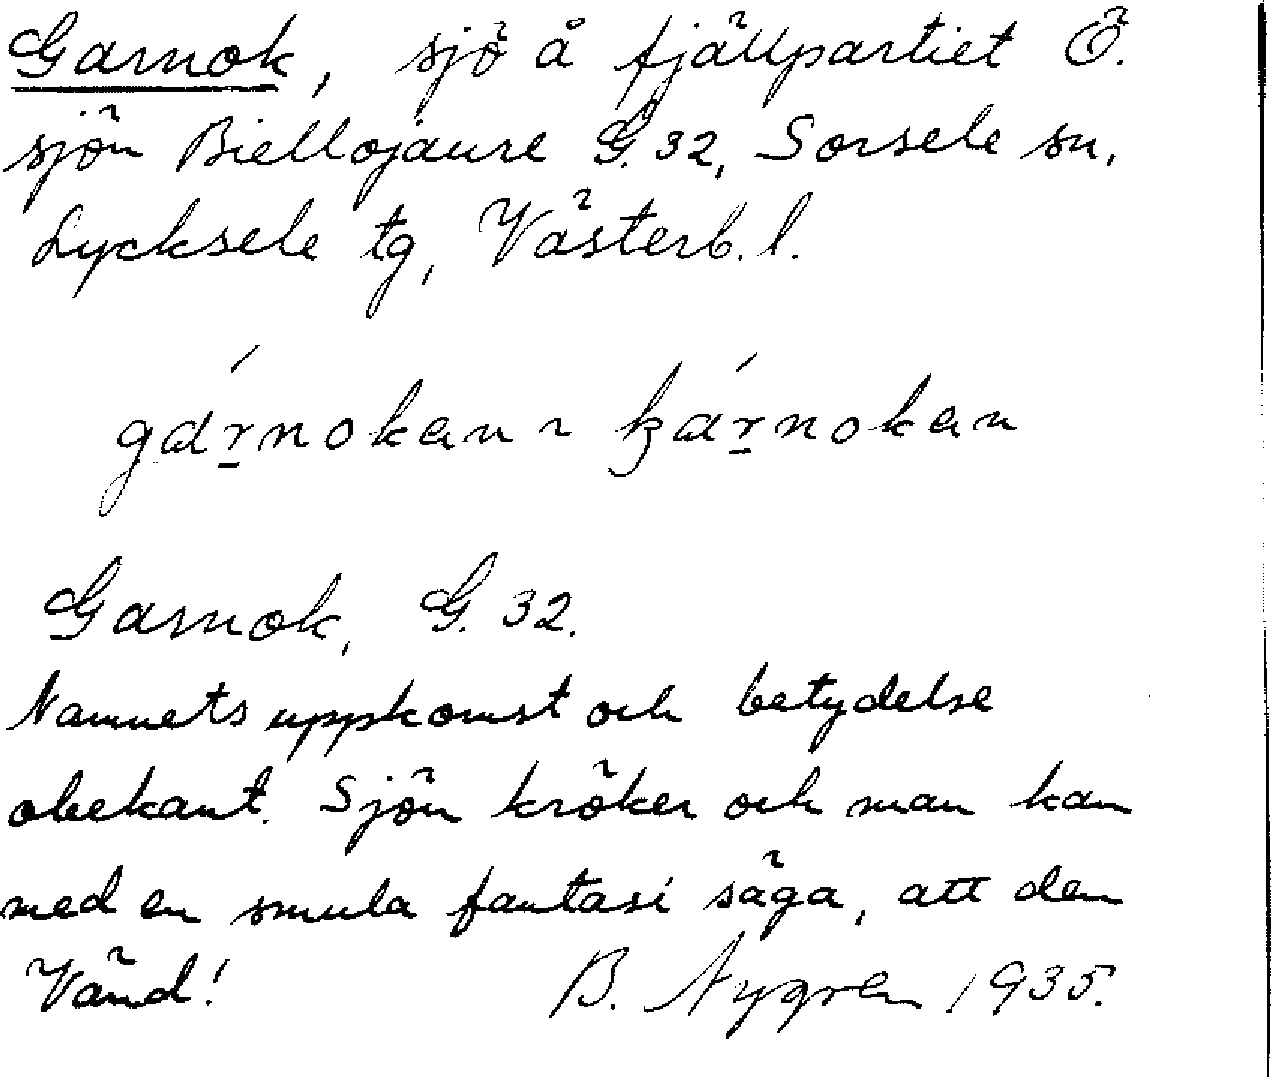 Garnok, sjö å fjällpartiet Ö.
sjön Biellojaure G. 32, Sorsele sn,
Lycksele tg, Västerb. l.
gárnokan ~ kárnokan
Garnok, G. 32.
Namnets uppkomst och betydelse
obekant. Sjön kröker och man kan
med en smula fantasi säga, att den
Vänd! B. Nygren 1935.